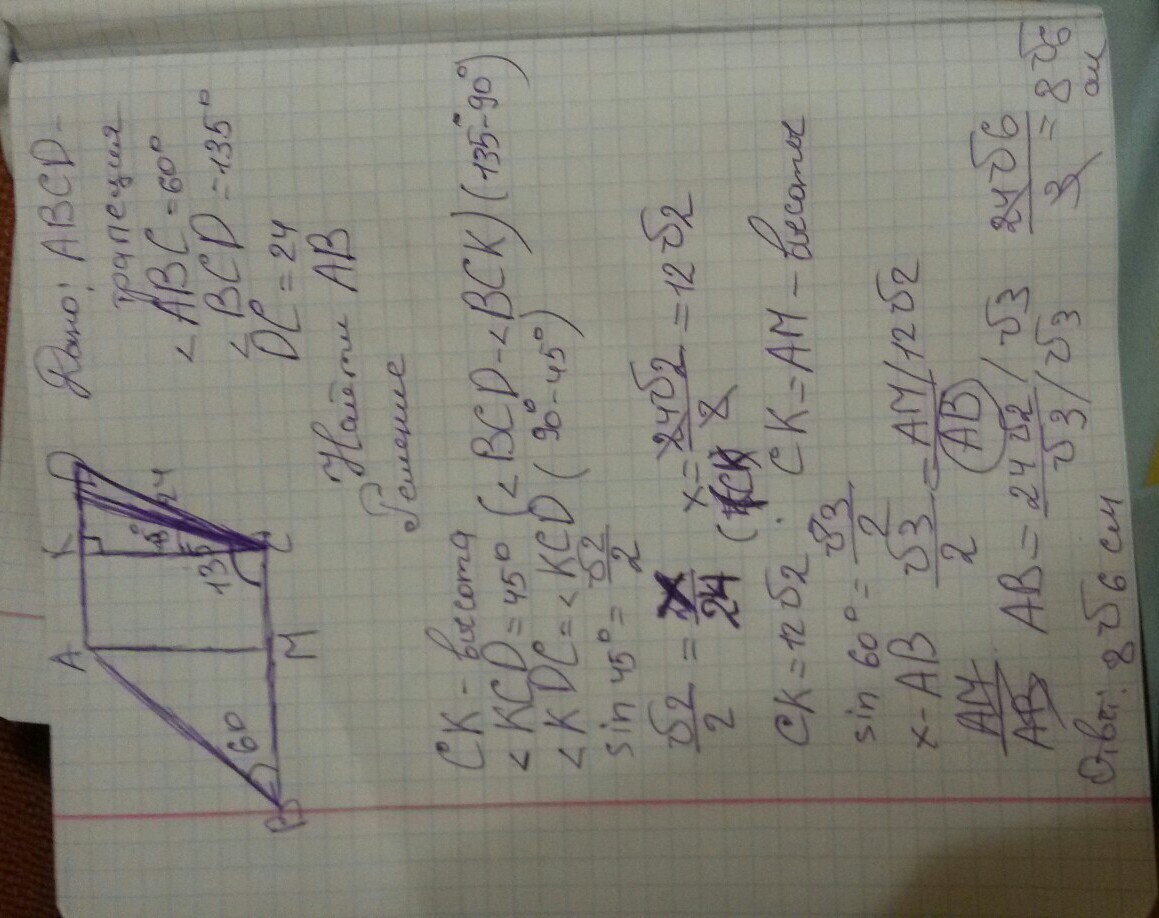 Дано: ABCD -
трапеция
< ABC = 60°
< BCD = 135°
DC = 24
Найти AB
Решение
A
K
D
45°
24
135
60
B
M
C
CK - высота
< KCD = 45° (< BCD - < BCK) (135° - 90°)
< KDC = < KCD (90° - 45°)
sin 45° = √2/2
√2/2 = x/24 (CK) x = 24√2/2 = 12√2
CK = 12√2. CK = AM - высоты
sin 60° = √3/2
x - AB √3/2 = AM/12√2 / AB
AM/AB AB = 24√2/√3 /√3/√3 24√6/3 = 8√6 см
Ответ: 8√6 см